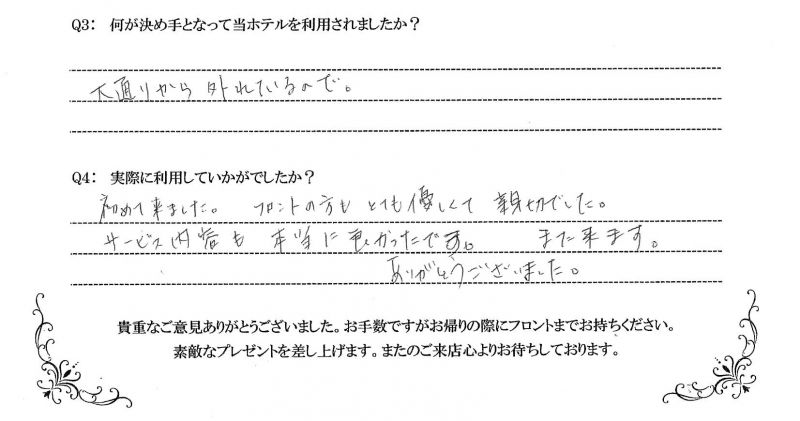 Q3: 何が決め手となって当ホテルを利用されましたか？
大通りから外れているので。
Q4: 実際に利用していかがでしたか？
初めて来ました。 フロントの方も とても優しくて 親切でした。
サービス内容も 本当に良かったです。 また来ます。
ありがとうございました。
貴重なご意見ありがとうございました。お手数ですがお帰りの際にフロントまでお持ちください。
素敵なプレゼントを差し上げます。またのご来店心よりお待ちしております。